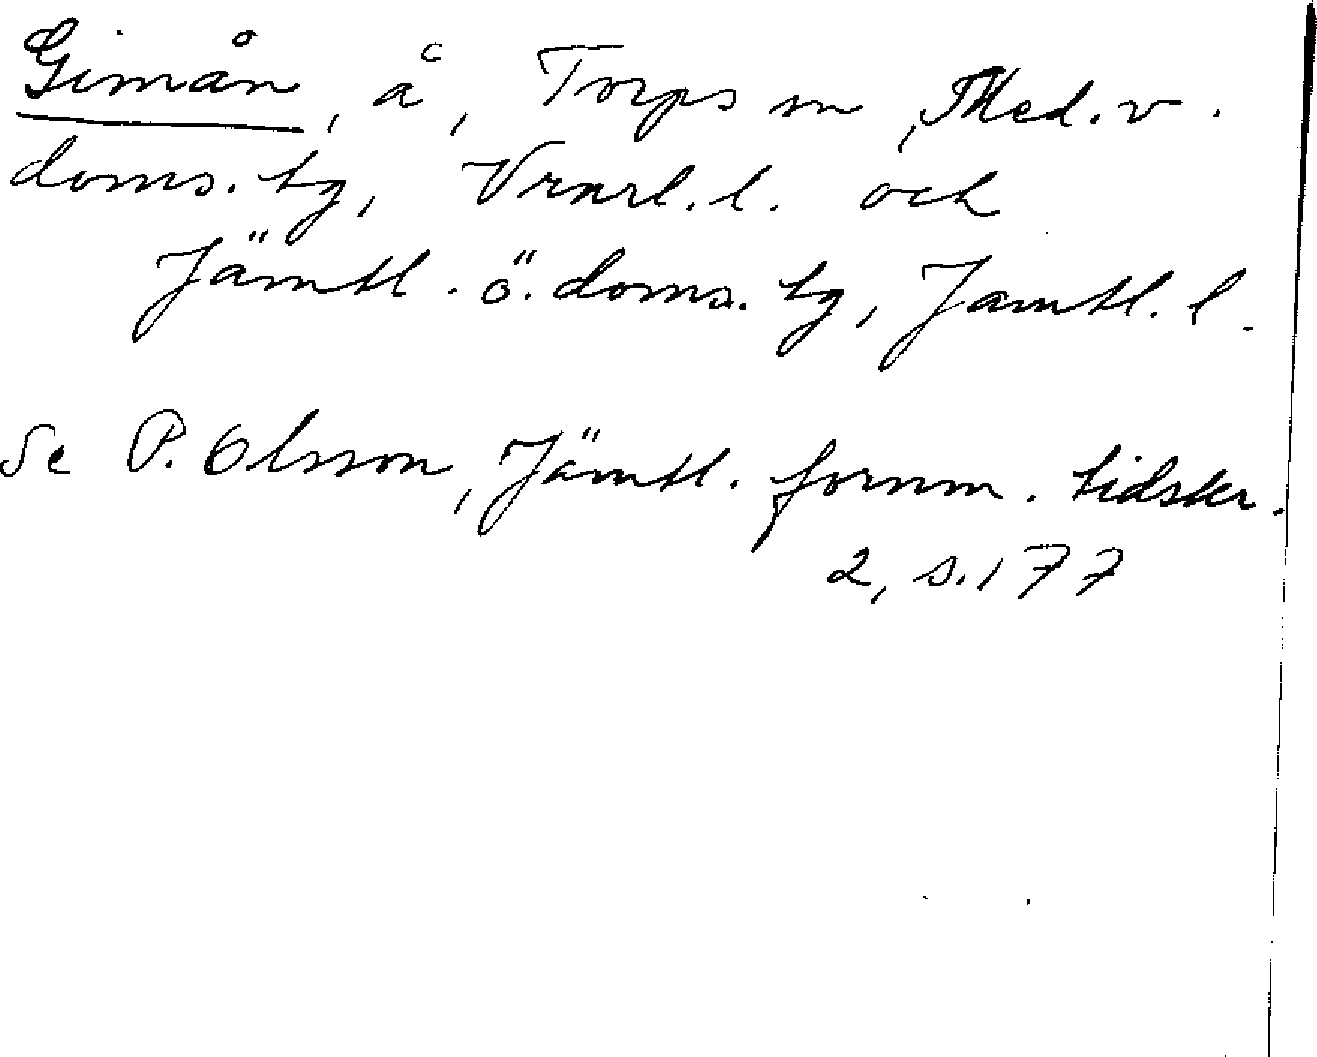 Gimån, å, Torps sn, Med. v.
doms. tg, Vrnrl. l. och
Jämtl. ö. doms. tg, Jämtl. l.
Se P. Olsson, Jämtl. fornm. tidskr.
2, s. 177